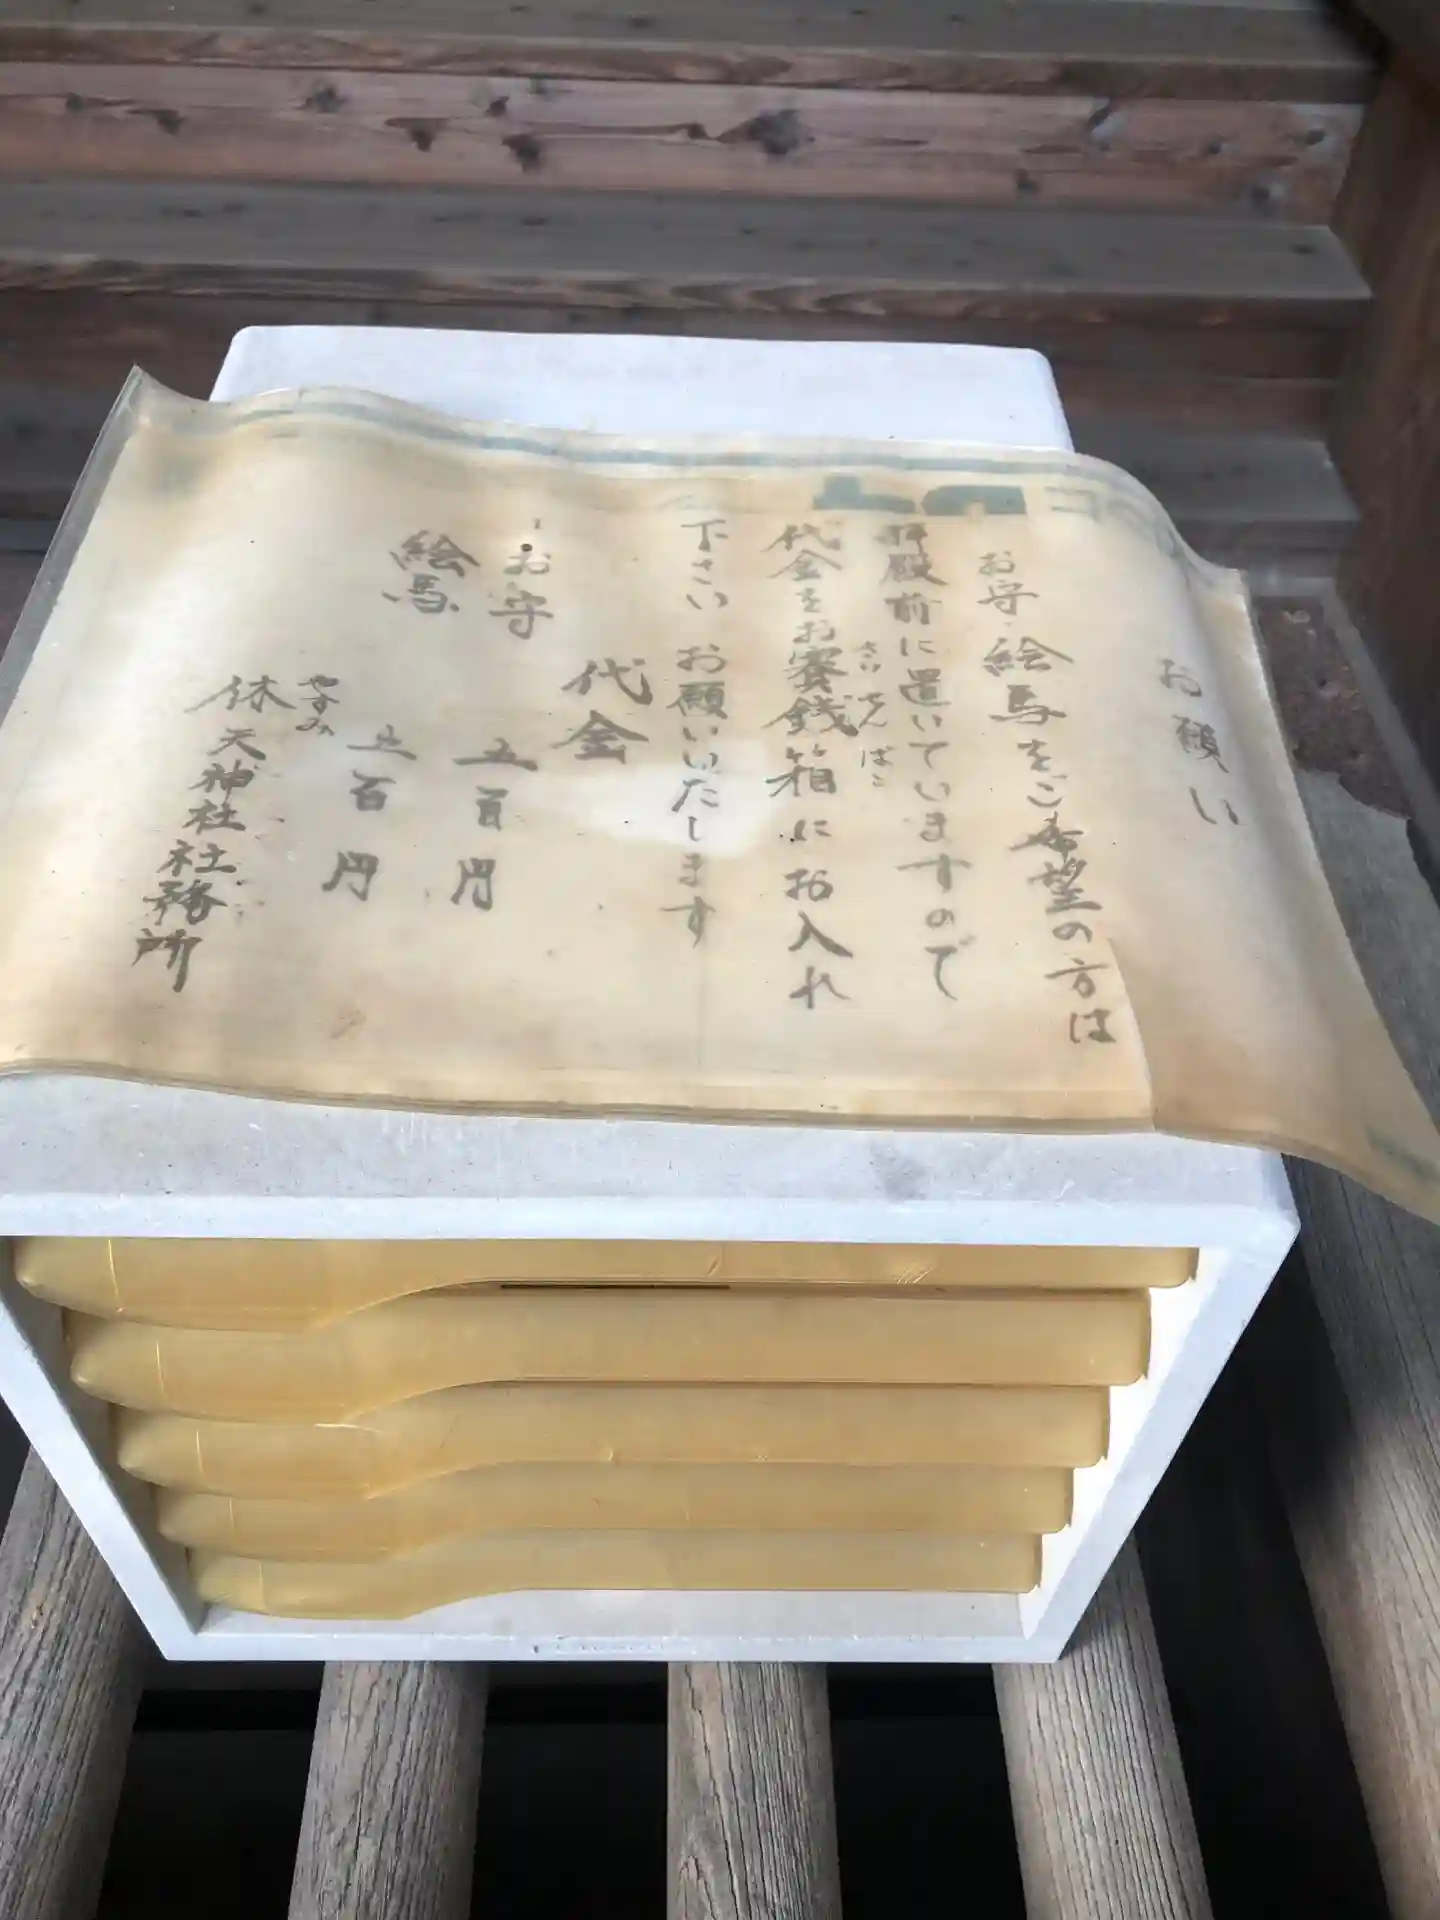 お願い
お守 絵馬をご希望の方は
拝殿前に置いていますので
代金をお賽銭箱にお入れ
さい せん ばこ
下さい お願いいたします
代金
お守 五百円
絵馬 五百円
やすみ
休天神社社務所